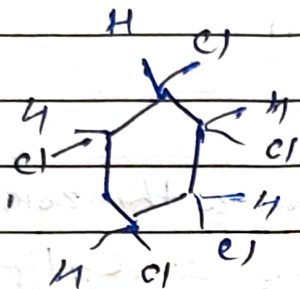 H
Cl
H
H
Cl
Cl
H
Cl
H
Cl